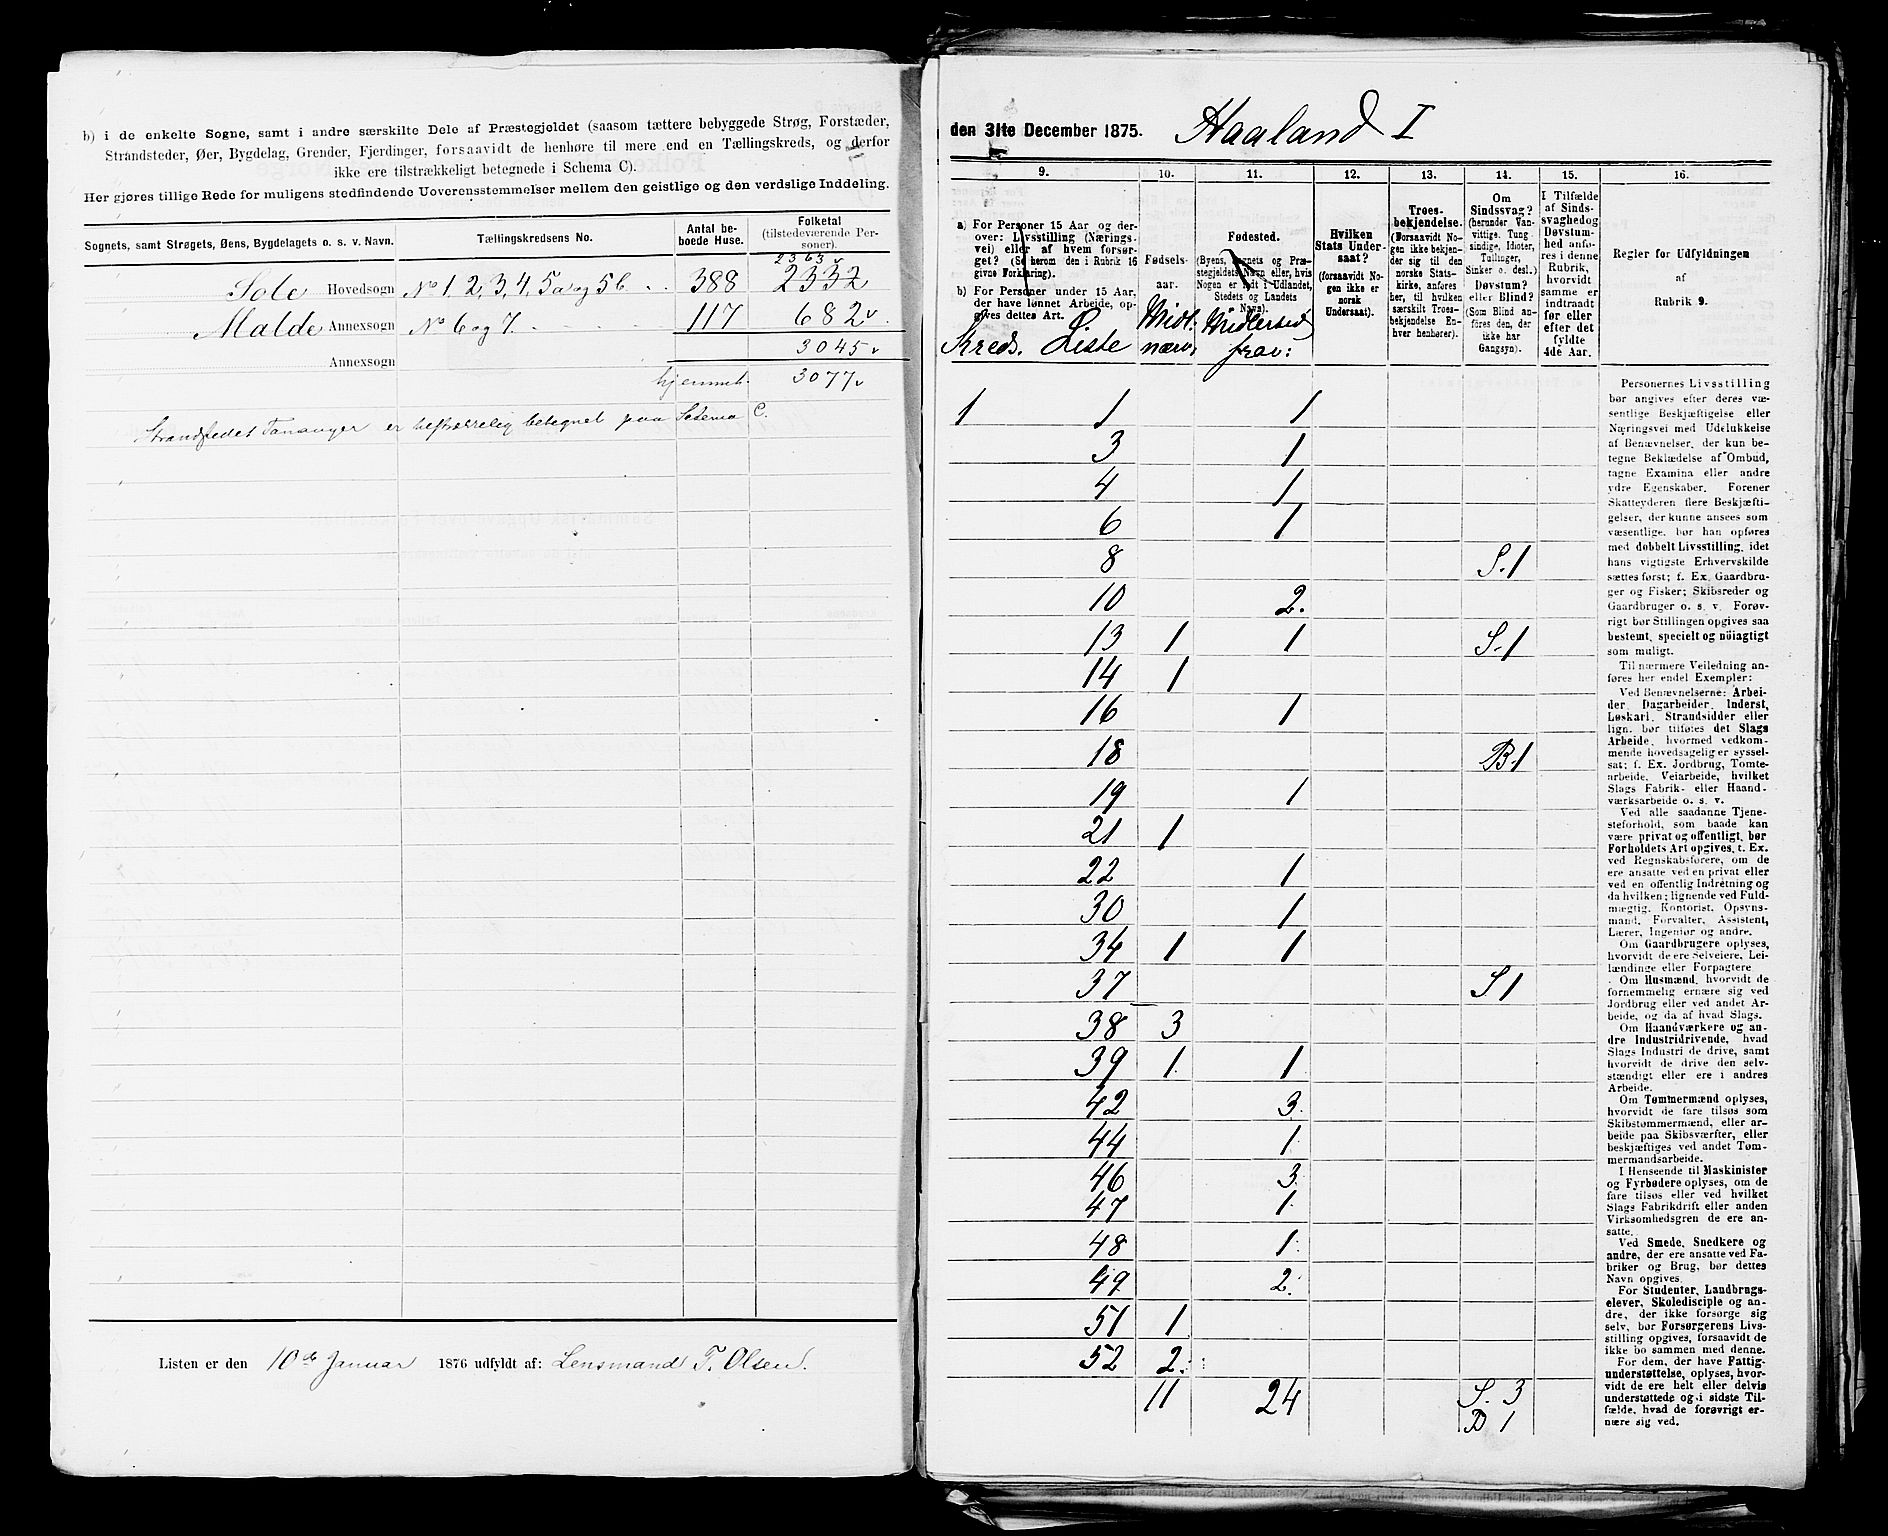 b) i de enkelte Sogne, samt i andre særskilte Dele af Præstegjeldet (saasom tættere bebyggede Strøg, Forstæder,
Strandsteder, Øer, Bygdelag, Grender, Fjerdinger, forsaavidt de henhøre til mere end en Tællingskreds, og derfor
ikke ere tilstrækkeligt betegnede i Schema C).
Her gjøres tillige Rede for muligens stedfindende Uoverensstemmelser mellem den geistlige og den verdslige Inddeling.
Sognets, samt Strøgets, Øens, Bygdelagets o. s. v. Navn.
Tællingskredsens No.
Antal be-
boede Huse.
Folketal
(tilstedeværende Per-
soner).
2363 v
Sole Hovedsogn No 1, 2, 3, 4, 5a og 5b. 388 2332
Malde Annexsogn No 6 og 7. 117 682 v
3045 v
Annexsogn
hjemmeh. 3077 v
Strandstedet Tananger er tilstrækkelig betegnet paa Schema C.
Listen er den 10de Januar 1876 udfyldt af: Lensmand T. Olsen.
den 31te December 1875. Haaland I
9. 10. 11. 12. 13. 14. 15. 16.
a) For Personer 15 Aar og der-
over: Livsstilling (Nærings-
vei) eller af hvem forsør-
get? (Se herom den i Rubrik 16
givne Forklaring).
b) For Personer under 15 Aar,
der have lønnet Arbeide, op-
gives dettes Art.
Kreds. Liste
Fødsels-
aar.
Midl:
nærv:
Fødested.
(Byens, Sognets og Præ-
stegjeldets Navn eller, hvis
Nogen er født i Udlandet,
Stedets og Landets
Navn).
Midlertid
frav:
Hvilken
Stats Under-
saat?
(forsaavidt No-
gen ikke er
norsk
Undersaat).
Troes-
bekjendelse.
(Forsaavidt No-
gen ikke bekjen-
der sig til den
norske Stats-
kirke, anføres
her, til hvilken
særskilt Troes-
bekjendelse En-
hver henhører).
Om
Sindssvag?
(herunder Van-
vittige, Tung-
sindige, Idioter,
Tullinger,
Sinker o. desl.)
Døvstum?
eller Blind?
(Som Blind an-
føres den, der
ikke har
Gangsyn).
I Tilfælde
af Sinds-
svaghed og
Døvstum-
hed anfø-
res i denne
Rubrik,
hvorvidt
samme er
indtraadt
før eller
efter det
fyldte
4de Aar.
Regler for Udfyldningen
af
Rubrik 9.
1 1 1
3 1
4 1
6 1
8 S. 1
10 2.
13 1 1 S. 1
14 1
16 1
18 B. 1
19 1
21 1
22 1
30 1
34 1 1
37 S 1
38 3
39 1. 1
42 3.
44 1.
46 3.
47 1.
48 1.
49 2.
51 1
52 2.
11 24 S. 3
B 1
Personernes Livsstilling
bør angives efter deres væ-
sentlige Beskjæftigelse eller
Næringsvei med Udelukkelse
af Benævnelser, der kun be-
tegne Beklædelse af Ombud,
tagne Examina eller andre
ydre Egenskaber. Forener
Skatteyderen flere Beskjæfti-
gelser, der kunne ansees som
væsentlige, bør han opføres
med dobbelt Livsstilling, idet
hans vigtigste Erhvervskilde
sættes først; f. Ex. Gaardbru-
ger og Fisker; Skibsreder og
Gaardbruger o. s. v. Forøv-
rigt bør Stillingen opgives saa
bestemt, specielt og nöiagtigt
som muligt.
Til nærmere Veiledning an-
føres her endel Exempler:
Ved Benævnelserne: Arbei-
der, Dagarbeider, Inderst,
Løskarl, Strandsidder eller
lign. bør tilføies det Slags
Arbeide, hvormed vedkom-
mende hovedsagelig er syssel-
sat; f. Ex. Jordbrug, Tomte-
arbeide, Veiarbeide, hvilket
Slags Fabrik- eller Haand-
værksarbeide o. s. v.
Ved alle saadanne Tjene-
steforhold, som baade kan
være privat og offentligt, bør
Forholdets Art opgives, t. Ex.
ved Regnskabsførere, om de
ere ansatte ved en privat eller
ved en offentlig Indretning og
da hvilken; lignende ved Fuld-
mægtig, Kontorist, Opsyns-
mand, Forvalter, Assistent,
Lærer, Ingeniør og andre.
Om Gaardbrugere oplyses,
hvorvidt de ere Selveiere, Lei-
lændinge eller Forpagtere
Om Husmænd, hvorvidt de
fornemmelig ernære sig ved
Jordbrug eller ved andet Ar-
beide, og da af hvad Slags.
Om Haandværkere og an-
dre Industridrivende, hvad
Slags Industri de drive, samt
hvorvidt de drive den selv-
stændigt eller ere i andres
Arbeide.
Om Tømmermænd oplyses,
hvorvidt de fare tilsøs som
Skibstømmermænd, eller ar-
beide paa Skibsværfter, eller
beskjæftiges ved andet Tøm-
mermandsarbeide.
I Henseende til Maskinister
og Fyrbødere oplyses, om de
fare tilsøs eller ved hvilket
Slags Fabrikdrift eller anden
Virksomhedsgren de ere an-
satte.
Ved Smede, Snedkere og
andre, der ere ansatte ved Fa-
briker og Brug, bør dettes
Navn opgives.
For Studenter, Landbrugs-
elever, Skoledisciple og an-
dre, der ikke forsørge sig
selv, bør Forsørgerens Livs-
stilling opgives, forsaavidt de
ikke bo sammen med denne.
For dem, der have Fattig-
understøttelse, oplyses, hvor-
vidt de ere helt eller delvis
understøttede og i sidste Til-
fælde, hvad de forøvrigt er-
nære sig ved.